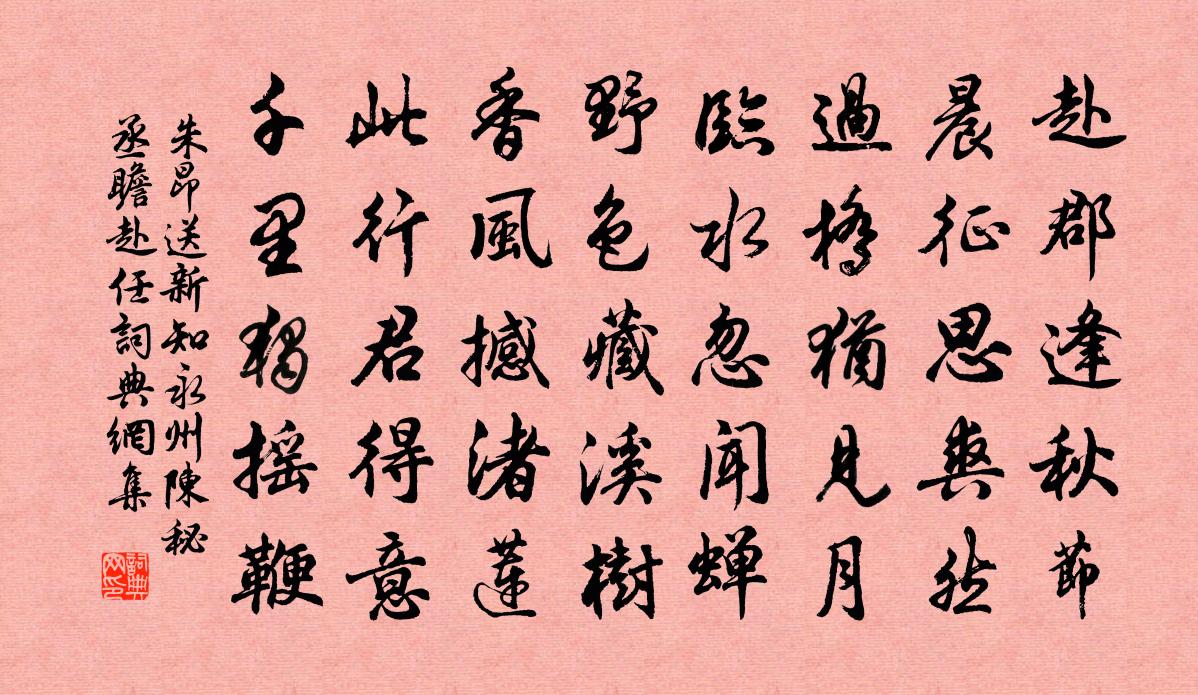 赴郡逢秋節
晨征思爽然
過橋猶見月
臨水忽聞蟬
野色藏溪樹
香風撼渚蓮
此行君得意
千里獨搖鞭
朱昂送新知永州陳秘
丞瞻赴任詞典網集
詞典
网印